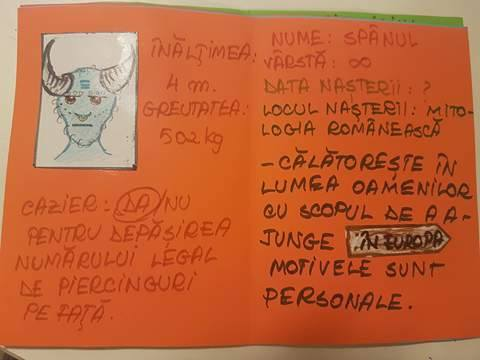 ÎNĂLȚIMEA:
4 m.
GREUTATEA:
502 kg
CAZIER: DA/NU
PENTRU DEPĂȘIREA
NUMĂRULUI LEGAL
DE PIERCINGURI
PE FAȚĂ.
NUME: SPÂNUL
VÂRSTĂ: ∞
DATA NAȘTERII: ?
LOCUL NAȘTERII: MITO-
LOGIA ROMÂNEASCĂ
-CĂLĂTOREȘTE ÎN
LUMEA OAMENILOR
CU SCOPUL DE A A-
JUNGE ÎN EUROPA
MOTIVELE SUNT
PERSONALE.